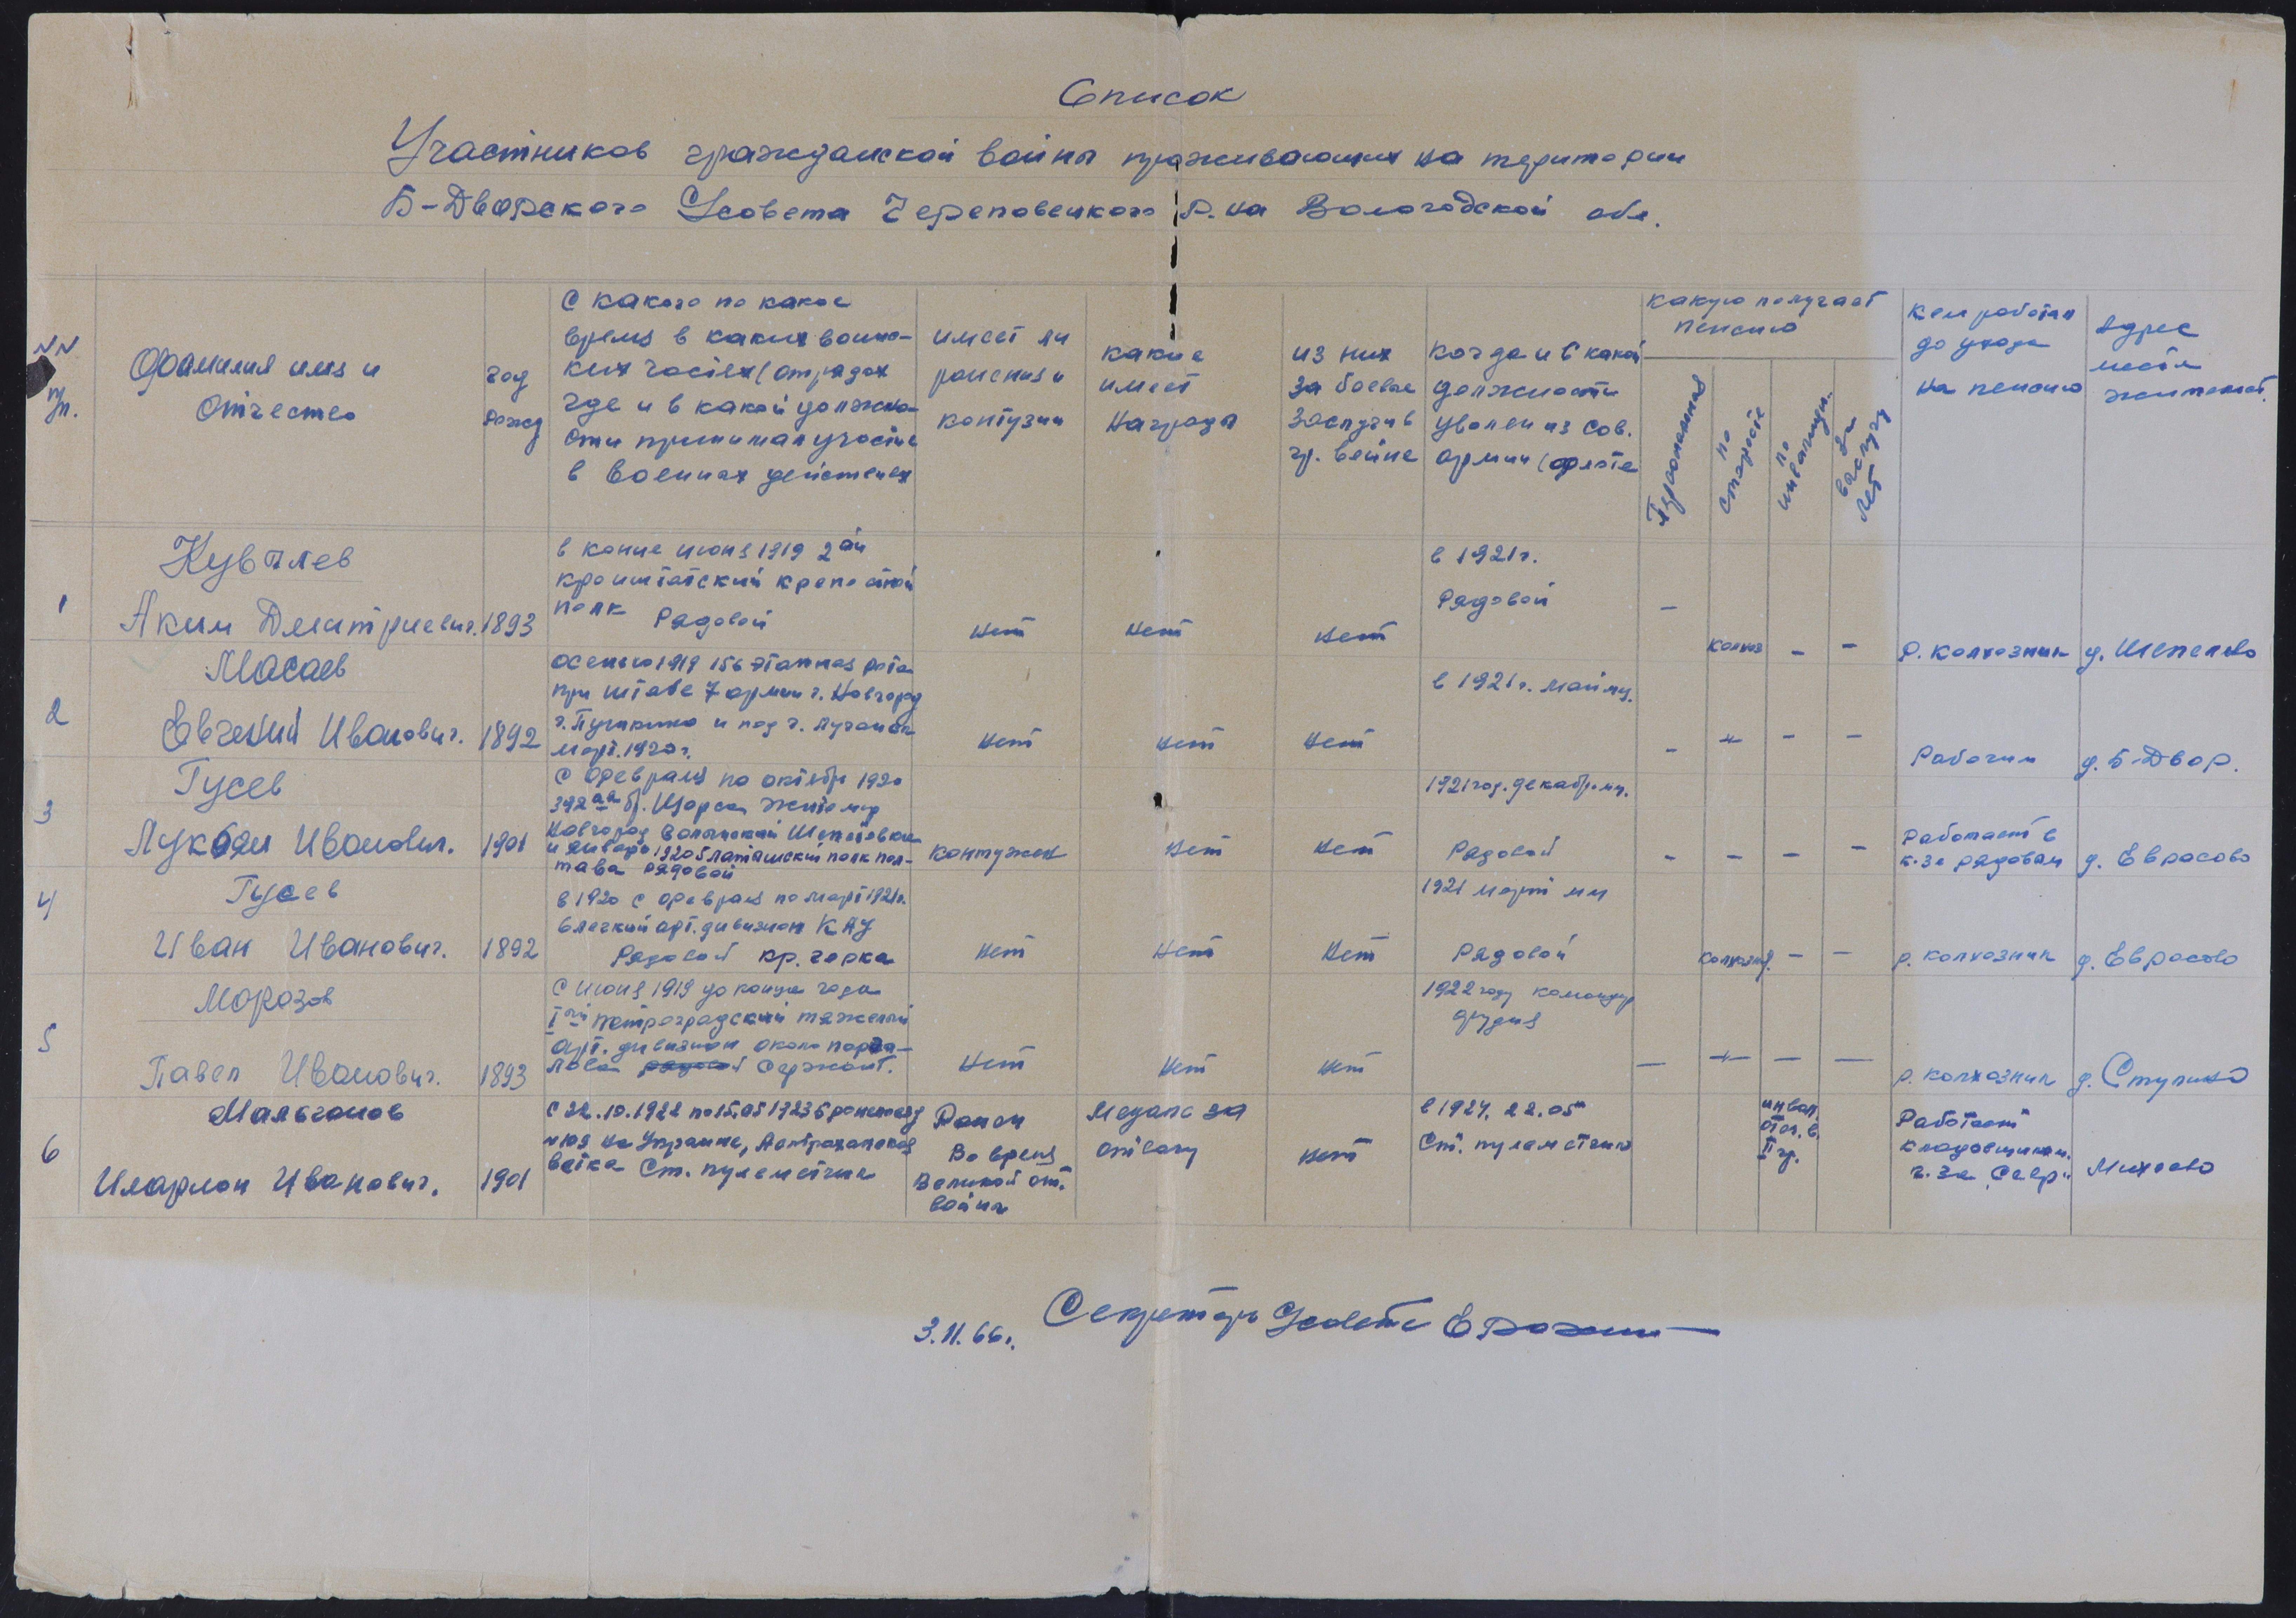 Список
Участников гражданской войны проживающих на територии
Б-Дворского С/совета Череповецкого р.на Вологодской обл.
NN
п/п.
Фамилия имя и
отчество
год
рожд
с какого по какое
время в каких воинс-
ких частях (отрядах
где и в какой должно-
сти принимал участие
в военных действиях
имеет ли
ранения и
контузии
какие
имеет
награды
из них
за боевые
заслуги в
гр. войне
когда и в какой
должности
уволен из сов.
армии (флоте
какую получает
пенсию
Персональная
по
старости
по
инвалидн.
за
выслугу
лет
Кем работал
до ухода
на пенсию
Адрес
места
жительст.
1
Кувылев
Аким Дмитриевич.
1893
в конце июня 1919 2ой
кронштатский крепостной
полк Рядовой
нет
нет
нет
в 1921г.
Рядовой
–
колхоз
–
–
р. колхозник
д. Шепелево
2
Масаев
Евгений Иванович.
1892
осенью 1919 156 этапная рота
при штабе 7 армии г. Новгород
г. Пушкино и под г. Луганск
март. 1920г.
нет
нет
нет
в 1921г. май м.
–
+
–
–
Рабочим
д. Б-Двор.
3
Гусев
Лукоян Иванович.
1901
с февраля по октябр 1920
392ая бр. Щорса Житомир
Новгород Волынский Шепетовка
и январь 1920 5 латышский полк пол-
тава рядовой
контужен
нет
нет
1921 год. декабр. м.
Рядовой
–
–
–
–
Работает в
к-зе рядовым
д. Еврасово
4
Гусев
Иван Иванович.
1892
в 1920 с февраля по март 1921г.
в легкий арт. дивизион КАУ
Рядовой кр. горка
нет
нет
нет
1921 март м-ц
Рядовой
колхозн.
–
–
р. колхозник
д. Еврасово
5
Морозов
Павел Иванович.
1893
с июня 1919 до конца года
Iый петроградский тяжелый
арт. дивизион около
рядовой сержант.
нет
нет
нет
1922 году командир
орудия
–
+
–
–
р. колхозник
д. Ступино
6
Мальгонов
Иларион Иванович.
1901
С 22.10.1922 по 15.05 1923 бронепоезд
на Украине, Астраханская
ветка Ст. пулеметчик
Ранен
Во время
Великой от.
войны
Медаль за
отвагу
нет
в 1924. 22.05
Ст. пулеметчик
инвал.
отеч. в.
II гр.
Работает
кладовщиком
к-за „Север"
Михеево
3.11.66г.
Секретарь С/совета